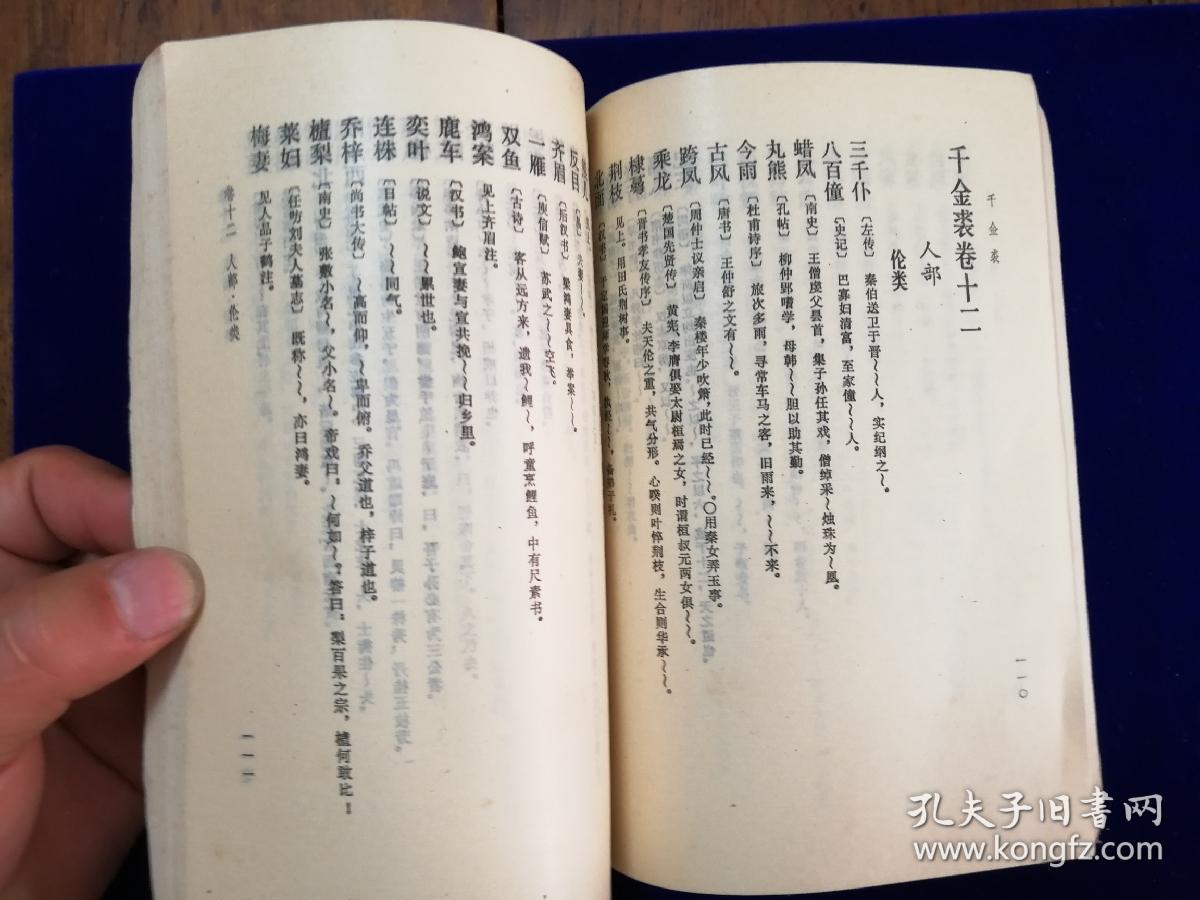 千金裘
千金裘卷十二
人部
伦类
三千仆 〔左传〕 秦伯送卫于晋～～人，实纪纲之～。
八百僮 〔史记〕 巴寡妇清富，至家僮～～人。
蜡凤 〔南史〕 王僧虔父昙首，集子孙任其戏，僧绰采～烛珠为～凰。
丸熊 〔孔帖〕 柳仲郢嗜学，母韩～～胆以助其勤。
今雨 〔杜甫诗序〕 旅次多雨，寻常车马之客，旧雨来，～～不来。
古风 〔唐书〕 王仲舒之文有～～。
跨凤 〔周仲士议亲启〕 秦楼年少吹箫，此时已经～～。〇用秦女弄玉事。
乘龙 〔楚国先贤传〕 黄宪、李膺俱娶太尉桓焉之女，时谓桓叔元两女俱～～。
棣萼 〔晋书孝友传序〕 夫天伦之重，共气分形。心睽则叶悴荆枝，生合则华承～～。
荆枝 见上。用田氏荆树事。
一一〇
反目
齐眉 〔后汉书〕 梁鸿妻具食，举案～～。
一雁 〔庾信赋〕 苏武之～～空飞。
双鱼 〔古诗〕 客从远方来，遗我～鲤～，呼童烹鲤鱼，中有尺素书。
鸿案 见上齐眉注。
鹿车 〔汉书〕 鲍宣妻与宣共挽～～归乡里。
奕叶 〔说文〕 ～～累世也。
连株 〔白帖〕 ～～同气。
乔梓 〔尚书大传〕 ～高而仰，～卑而俯。乔父道也，梓子道也。
樝梨 〔南史〕 张敷小名～，父小名～。帝戏曰：～何如～？答曰：梨百果之宗，樝何敢比！
莱妇 〔任昉刘夫人墓志〕 既称～～，亦曰鸿妻。
梅妻 见人品子鹤注。
卷十二 人部·伦类
一一一
孔夫子旧书网
www.kongfz.com